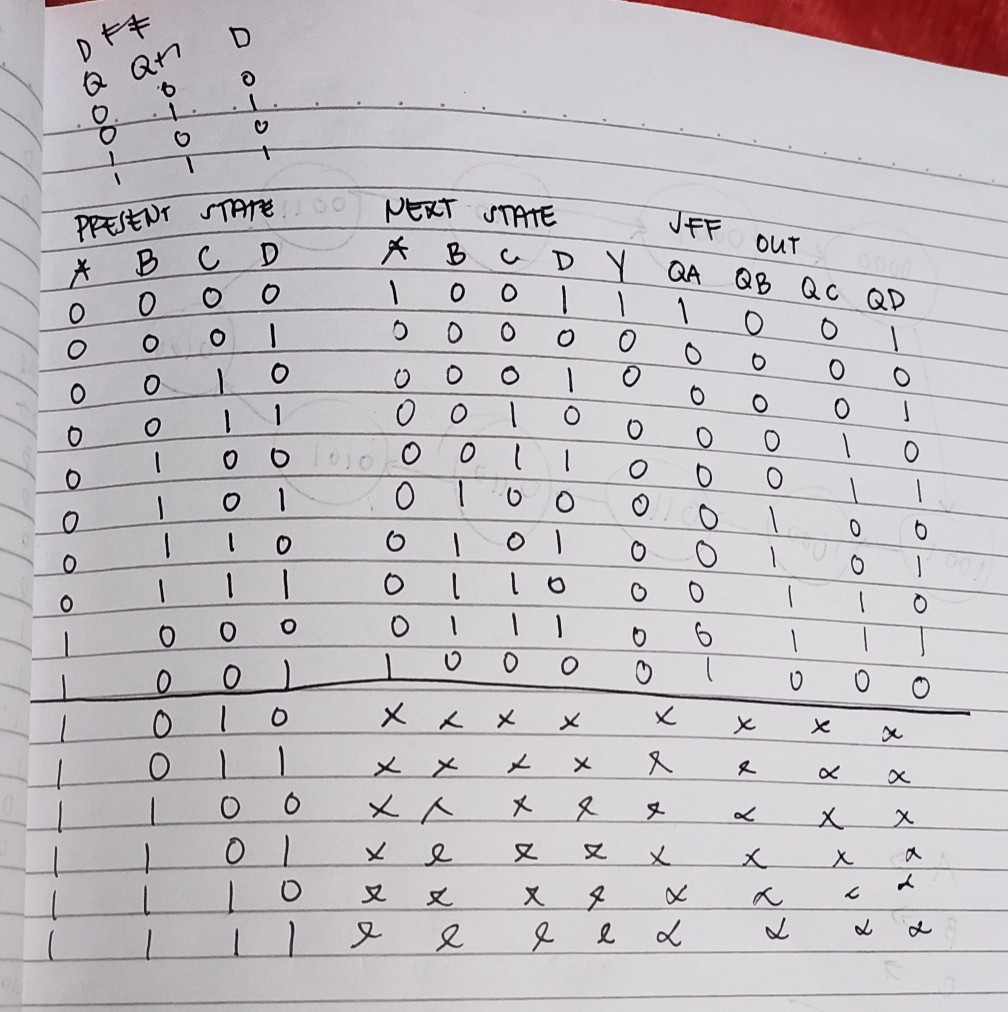 D FF
Q Q+n D
0 0 0
0 1 1
1 0 0
1 1 1
PRESENT STATE NEXT STATE JFF OUT
A B C D A B C D Y QA QB QC QD
0 0 0 0 1 0 0 1 1 1 0 0 1
0 0 0 1 0 0 0 0 0 0 0 0 0
0 0 1 0 0 0 0 1 0 0 0 0 1
0 0 1 1 0 0 1 0 0 0 0 1 0
0 1 0 0 0 0 1 1 0 0 0 1 1
0 1 0 1 0 1 0 0 0 0 1 0 0
0 1 1 0 0 1 0 1 0 0 1 0 1
0 1 1 1 0 1 1 0 0 0 1 1 0
1 0 0 0 0 1 1 1 0 0 1 1 1
1 0 0 1 1 0 0 0 0 1 0 0 0
1 0 1 0 x x x x x x x x
1 0 1 1 x x x x x x x x
1 1 0 0 x x x x x x x x
1 1 0 1 x x x x x x x x
1 1 1 0 x x x x x x x x
1 1 1 1 x x x x x x x x